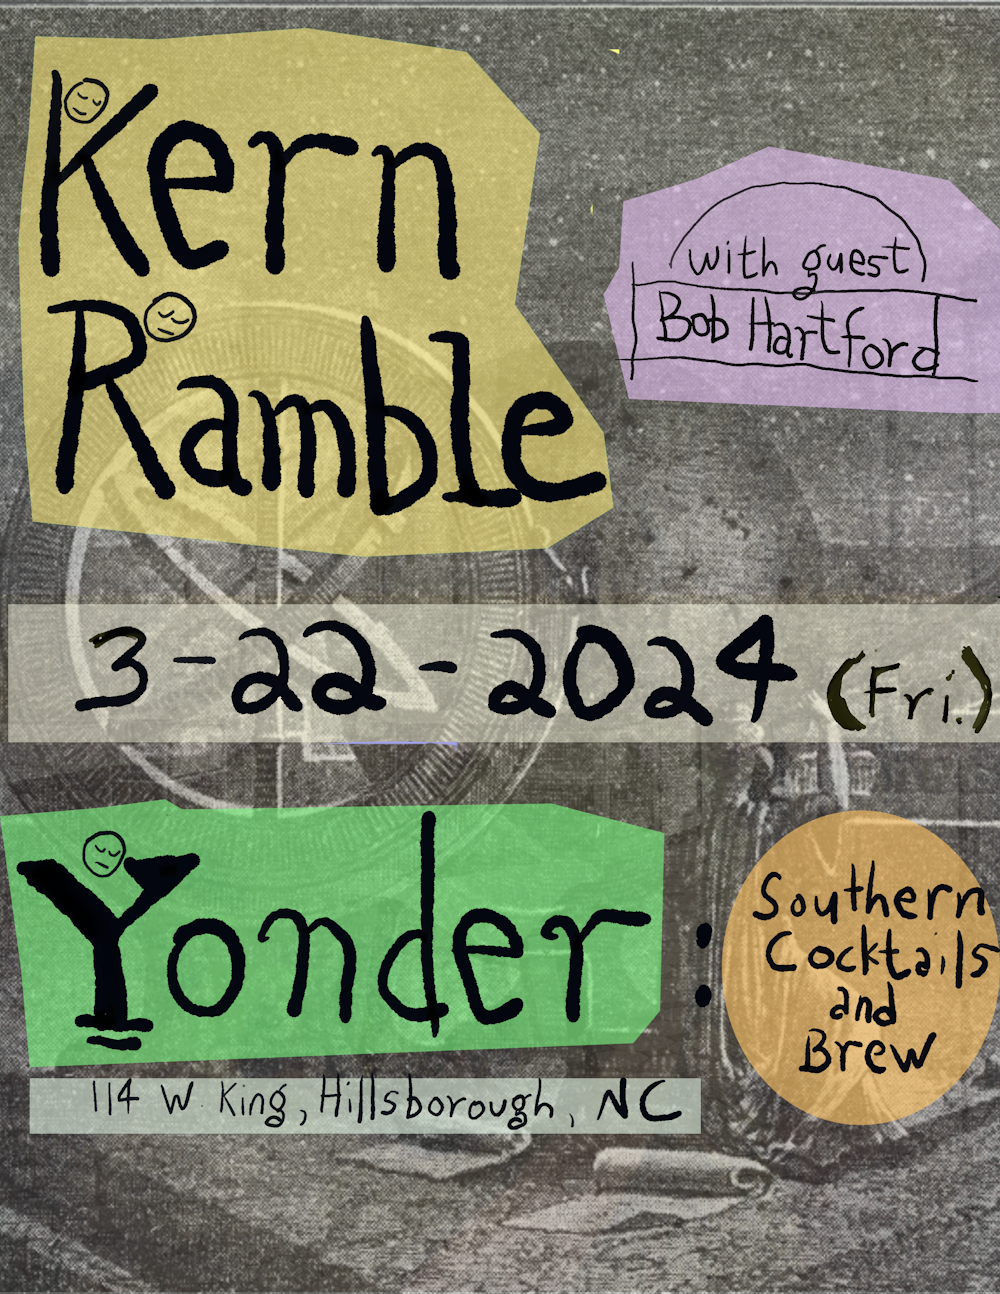 Kern
Ramble
with guest
Bob Hartford
3-22-2024 (Fri.)
Yonder :
Southern
Cocktails
and
Brew
114 W. King, Hillsborough, NC